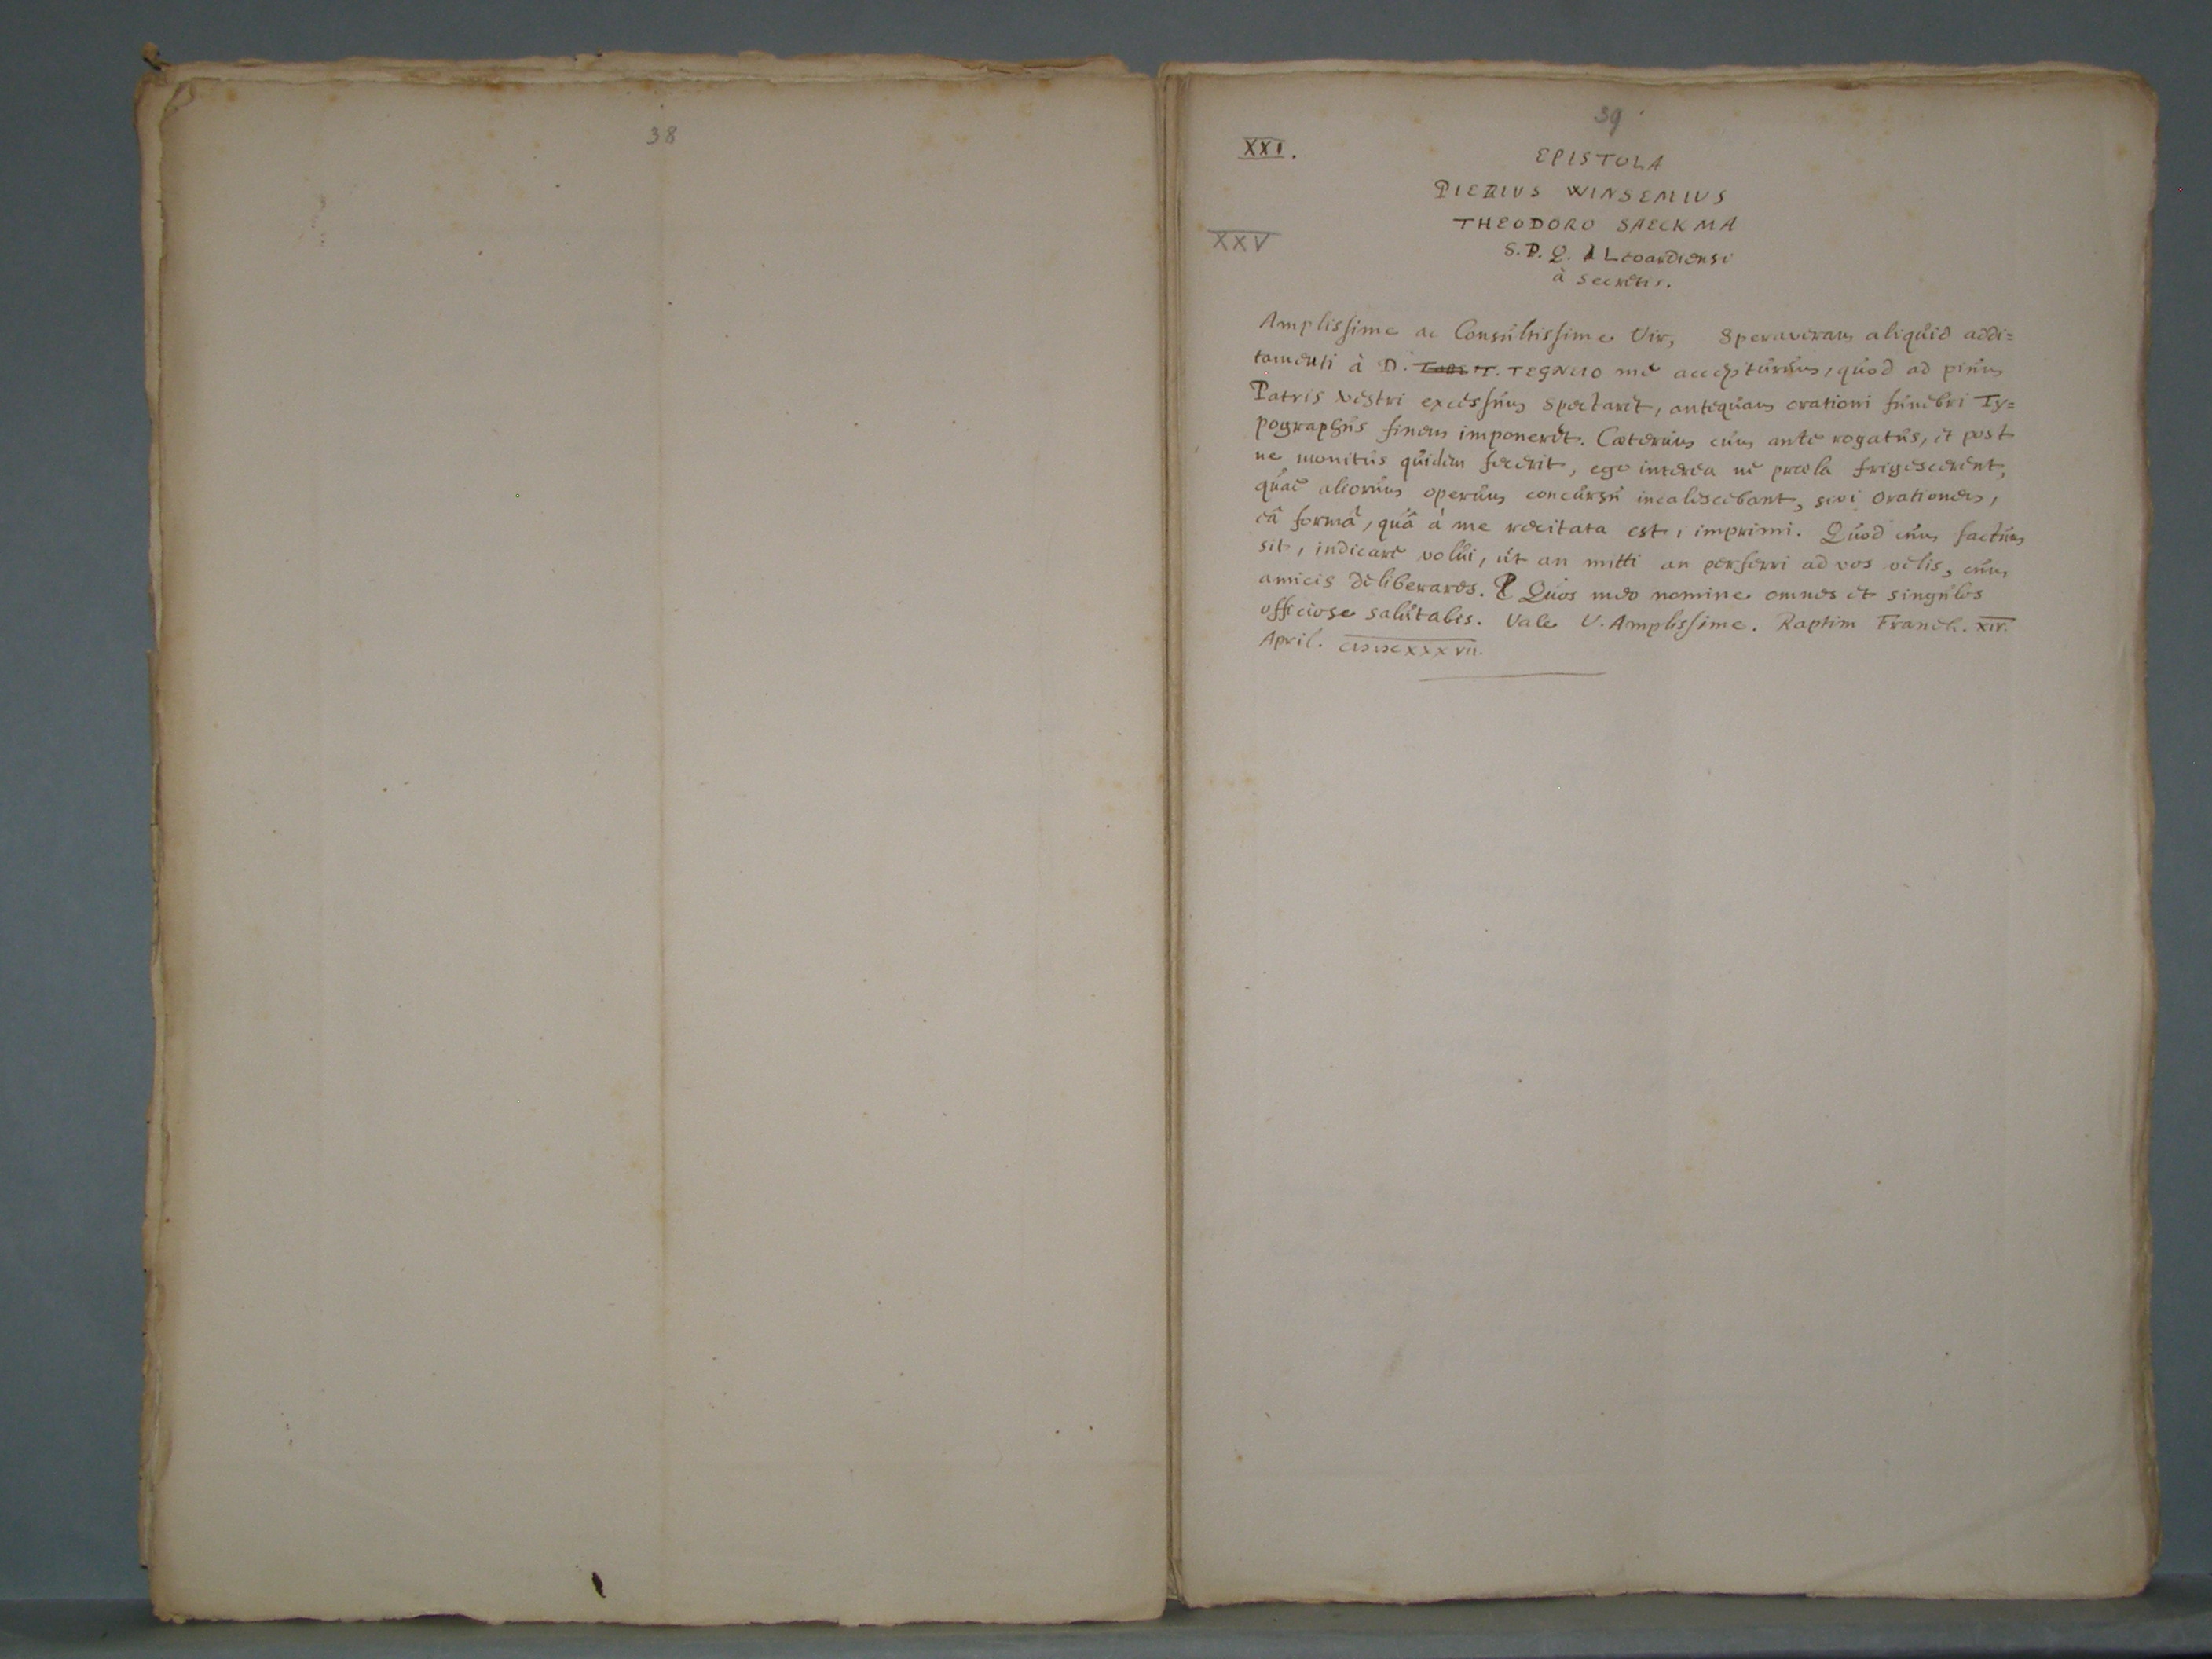 38
39
XXI.
EPISTOLA
PIERIUS WINSEMIUS
THEODORO SAECKMA
XXV
S. P. Q. Leoardiensi
à Secretis.
Amplissime ac Consultissime Vir, Speraveram aliquid addi=
tamenti à D. T. TEGNEIO me accepturum, quod ad pium
Patris vestri excessum spectaret, antequam orationi funebri Ty=
pographus finem imponeret. Cæterum cum ante rogatus, et post
ne monitus quidem fecerit, ego interea ne præla frigescerent,
quae aliorum operum concursu incalescebant, sivi orationem,
eâ formâ, quâ à me recitata est, imprimi. Quod cum factum
sit, indicare volui, ut an mitti an perferri ad vos velis, cum
amicis deliberares. Quos meo nomine omnes et singulos
officiose salutabis. Vale V. Amplissime. Raptim Franek. XIV.
April. CIƆIƆCXXXVII.